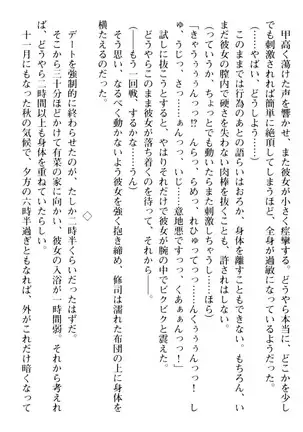 甲高く蕩けた声を響かせ、また彼女が小さく痙攣する。どうやら本当に、どこかを少し
でも刺激されれば簡単に絶頂してしまうほど、全身が過敏になっているようだった。
(……やばい、どうしよう……)
このままでは後戯も、そのあとの語らいはおろか、身体を離すこともできない。もちろん、い
まだ彼女の膣内で硬さを失わない肉棒を抜くことも、許されはしない。
(っていうか、ちょっとでも動いたらまた刺激しちゃうし……ほら)
「きゃうぅぅんっっ!? んらっ、らめっ、れひゅってっ……んくぅぅうんっっ! し
ゅ、うじっ、さ……ぁんっっ、いじ……意地悪ですっ、くあぁぁんっっ!」
試しに抜こうとすると、やはりそれだけで彼女が腕の中でビクビクと震えた。
どうやらこのまま彼女が落ち着くのを待って、それから――。
(――もう一回戦、するかな……うん)
そう思い、なるべく動かないよう彼女を強く抱き締め、修司は濡れた布団の上に身体を
横たえるのだった。
◇
デートを強制的に終わらせたのが、たしか二時半くらいだったはずだ。
そこから三十分ほどかけて有菜の家に向かい、彼女の入浴が一時間弱。それから考えれ
ば、どうやら二時間以上も身体を重ねていたらしい。
十一月にもなった秋の気候で、夕方の六時半過ぎともなれば、外がこれだけ暗くなって